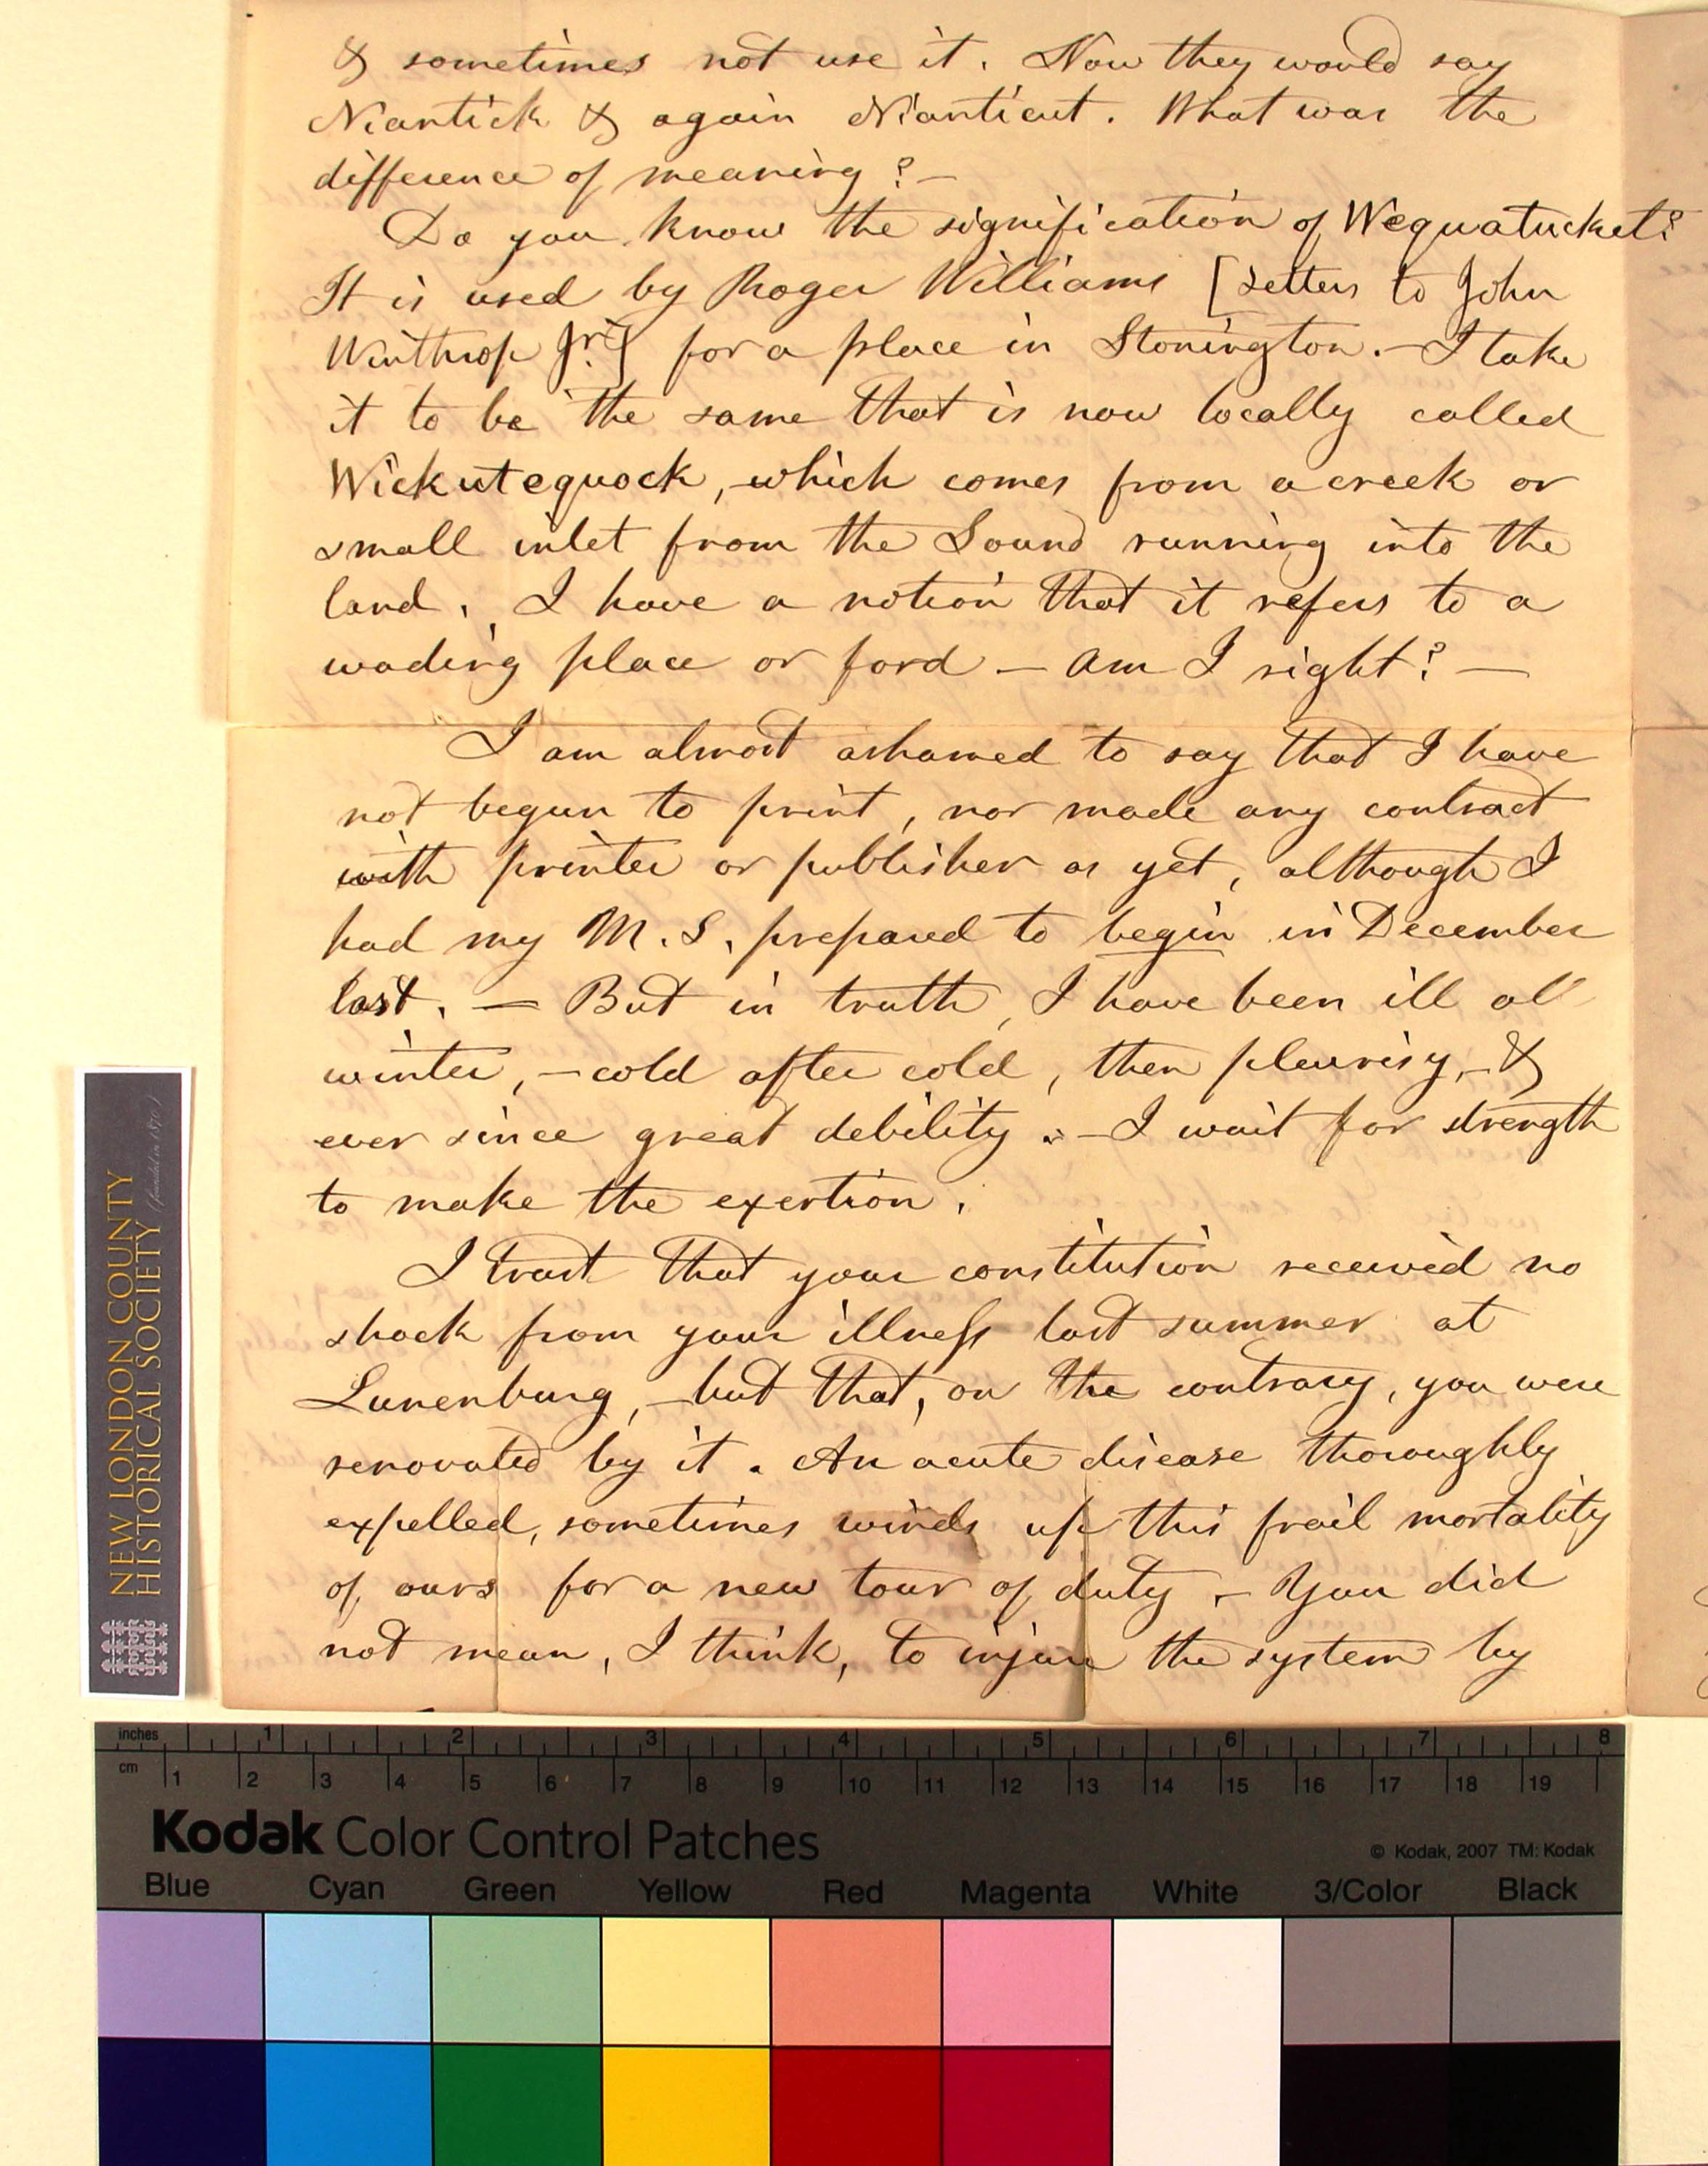 & sometimes not use it. Now they would say
Niantick & again Nianticut. What was the
difference of meaning?—
Do you know the signification of Wequatucket?
It is used by Roger Williams [Letters to John
Winthrop Jr.] for a place in Stonington.—I take
it to be the same that is now locally called
Wickutequock, which comes from a creek or
small inlet from the Sound running into the
land. I have a notion that it refers to a
wading place or ford — Am I right?—
I am almost ashamed to say that I have
not begun to print, nor made any contract
with printer or publisher as yet, although I
had my M.S. prepared to begin in December
last. — But in truth, I have been ill all
winter, — cold after cold, then pleurisy, — &
ever since great debility. — I wait for strength
to make the exertion.
I trust that your constitution received no
shock from your illness last summer at
Lunenburg, — but that, on the contrary, you were
renovated by it. An acute disease thoroughly
expelled, sometimes winds up this frail mortality
of ours for a new tour of duty. — You did
not mean, I think, to injure the system by
NEW LONDON COUNTY
HISTORICAL SOCIETY (founded in 1870)
inches 1 2 3 4 5 6 7 8
cm 1 2 3 4 5 6 7 8 9 10 11 12 13 14 15 16 17 18 19
Kodak Color Control Patches
© Kodak, 2007 TM: Kodak
Blue Cyan Green Yellow Red Magenta White 3/Color Black